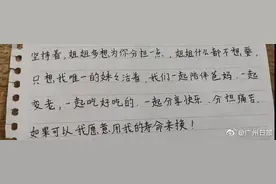 坚持着，姐姐多想为你分担一点，姐姐什么都不想要，
只想我唯一的妹妹活着，我们一起陪伴爸妈，一起
变老，一起吃好吃的，一起分享快乐，分担痛苦，
如果可以我愿意用我的寿命来换！
@广州日报